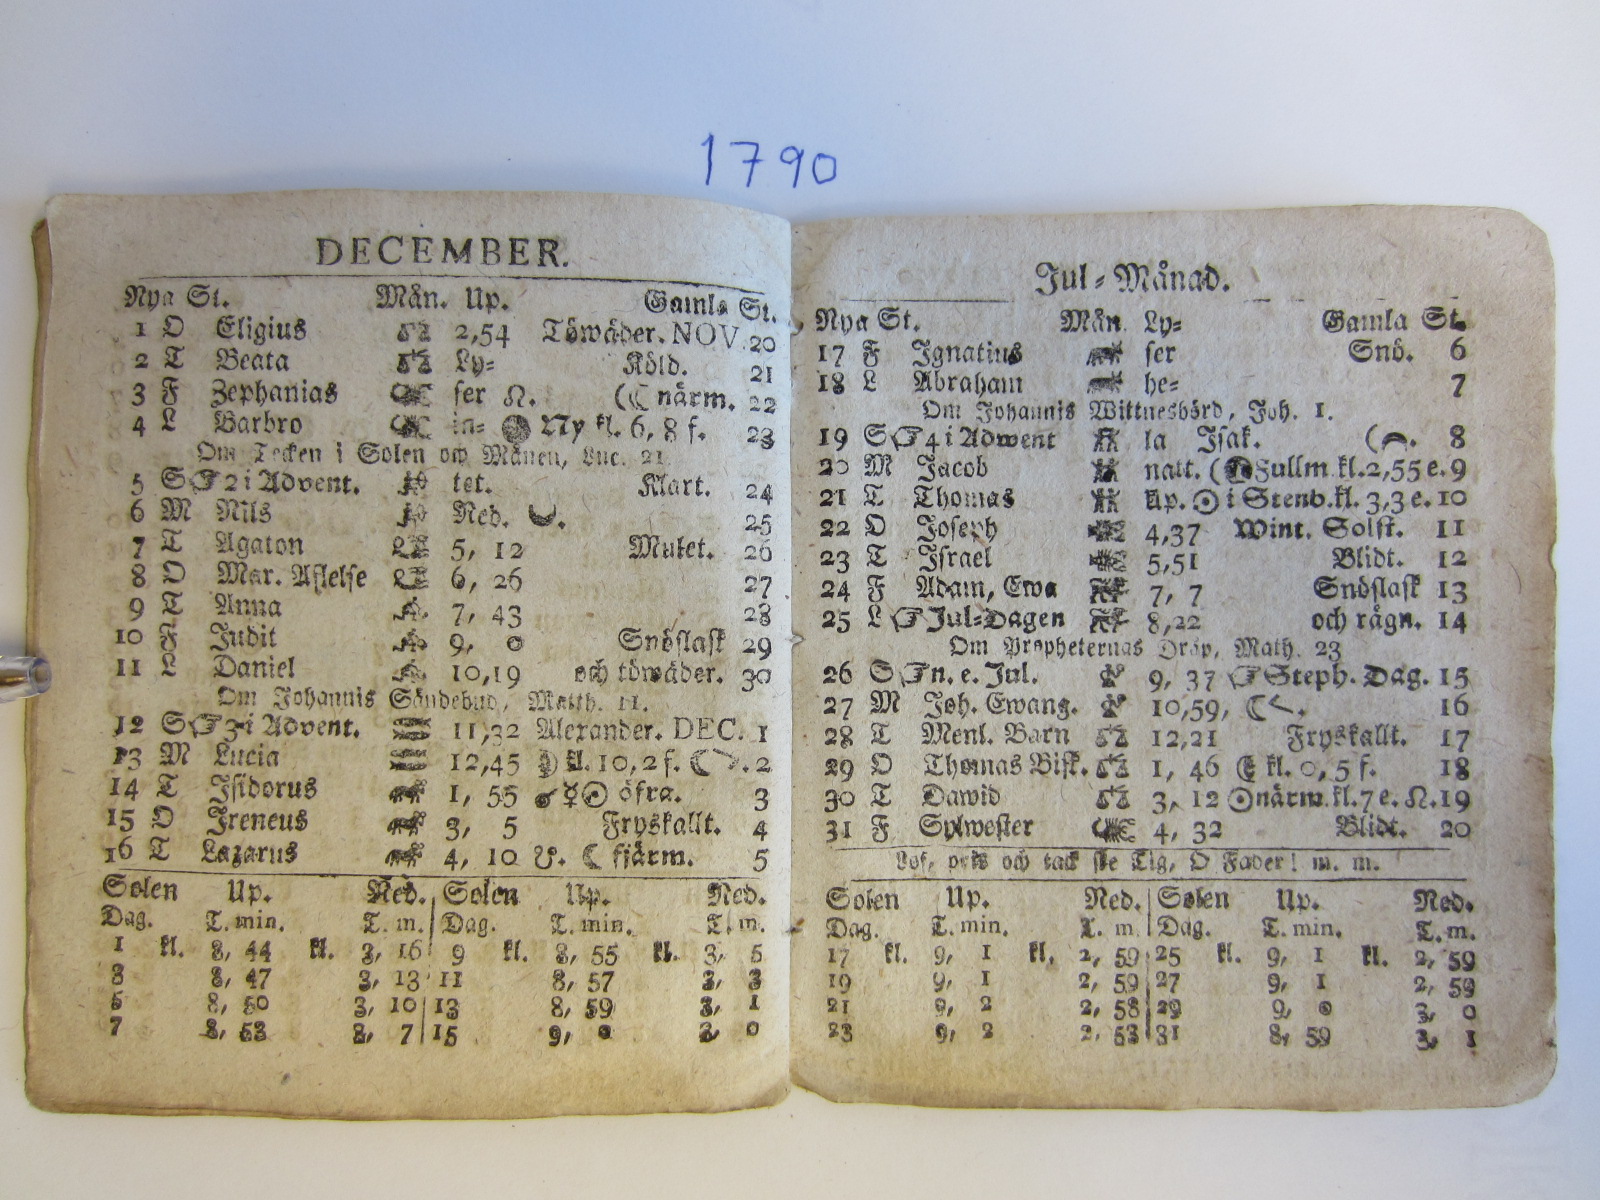 1790
DECEMBER.
Nya St. Mån. Up. Gamla St.
1 O Eligius 2,54 Töwäder. NOV. 20
2 T Beata Ly= Köld. 21
3 F Zephanias ser ☊. (☾ närm. 22
4 L Barbro in= Ny kl. 6, 8 f. 23
Om Tecken i Solen och Månen, Luc. 21.
5 S☞2 i Advent. tet. Klart. 24
6 M Nils Ned. 25
7 T Agaton 5, 12 Mulet. 26
8 O Mar. Aflelse 6, 26 27
9 T Anna 7, 43 28
10 F Judit 9, 0 Snöslask 29
11 L Daniel 10,19 och töwäder. 30
Om Johannis Sändebud, Matth. 11.
12 S☞3 i Advent. 11,32 Alexander. DEC. 1
13 M Lucia 12,45 kl. 10,2 f. 2
14 T Isidorus 1, 55 ☌☿☉ öfra. 3
15 O Ireneus 3, 5 Fryskallt. 4
16 T Lazarus 4, 10 ☋. ☾ fjärm. 5
Solen Up. Ned. Solen Up. Ned.
Dag. T. min. T. m. Dag. T. min. T. m.
1 kl. 8, 44 kl. 3, 16 9 kl. 8, 55 kl. 3, 5
3 8, 47 3, 13 11 8, 57 3, 3
5 8, 50 3, 10 13 8, 59 3, 1
7 8, 53 3, 7 15 9, 0 3, 0
Jul=Månad.
Nya St. Mån. Ly= Gamla St.
17 F Ignatius ser Snö. 6
18 L Abraham he= 7
Om Johannis Wittnesbörd, Joh. 1.
19 S☞4 i Adwent la Isak. 8
20 M Jacob natt. ( Fullm. kl. 2,55 e. 9
21 T Thomas Up. ☉ i Stenb. kl. 3,3 e. 10
22 O Joseph 4,37 Wint. Solst. 11
23 T Israel 5,51 Blidt. 12
24 F Adam, Ewa 7, 7 Snöslask 13
25 L☞Jul=Dagen 8,22 och rägn. 14
Om Propheternas Dråp, Math. 23
26 S☞n. e. Jul. 9, 37 ☞Steph. Dag. 15
27 M Joh. Ewang. 10,59, 16
28 T Menl. Barn 12,21 Fryskallt. 17
29 O Thomas Bisk. 1, 46 kl. 0, 5 f. 18
30 T Dawid 3, 12 ☉närm. kl. 7 e. ☊. 19
31 F Sylwester 4, 32 Blidt. 20
Lof, pris och tack ske Tig, O Fader! m. m.
Solen Up. Ned. Solen Up. Ned.
Dag. T. min. T. m. Dag. T. min. T. m.
17 kl. 9, 1 kl. 2, 59 25 kl. 9, 1 kl. 2, 59
19 9, 1 2, 59 27 9, 1 2, 59
21 9, 2 2, 58 29 9, 0 3, 0
23 9, 2 2, 58 31 8, 59 3, 1